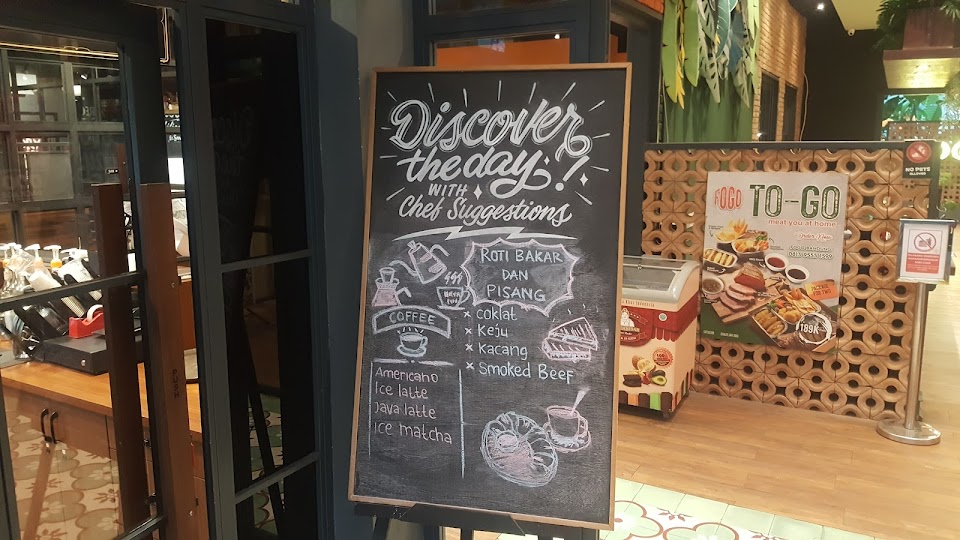 Discover
the day!
WITH
Chef Suggestions
ROTI BAKAR
DAN
PISANG
COFFEE
x coklat
x Keju
x Kacang
x Smoked Beef
Americano
Ice latte
Java latte
Ice matcha
FOGO
TO-GO
meat you at home
199K
NO PETS